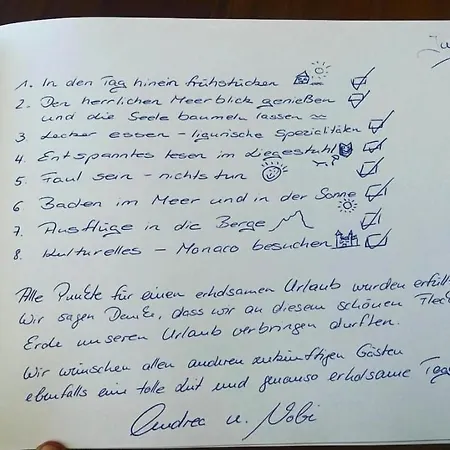 1. In den Tag hinein frühstücken
2. Den herrlichen Meerblick genießen
und die Seele baumeln lassen
3 Lecker essen - ligurische Spezialitäten
4. Entspanntes lesen im Liegestuhl
5. Faul sein - nichts tun
6 Baden im Meer und in der Sonne
7. Ausflüge in die Berge
8. Kulturelles - Monaco besuchen
Alle Punkte für einen erholsamen Urlaub wurden erfüll
Wir sagen Danke, dass wir an diesem schönen Fleck
Erde unseren Urlaub verbringen durften.
Wir wünschen allen anderen zukünftigen Gästen
ebenfalls eine tolle Zeit und genauso erholsame Tage
Andrea u. Nobi